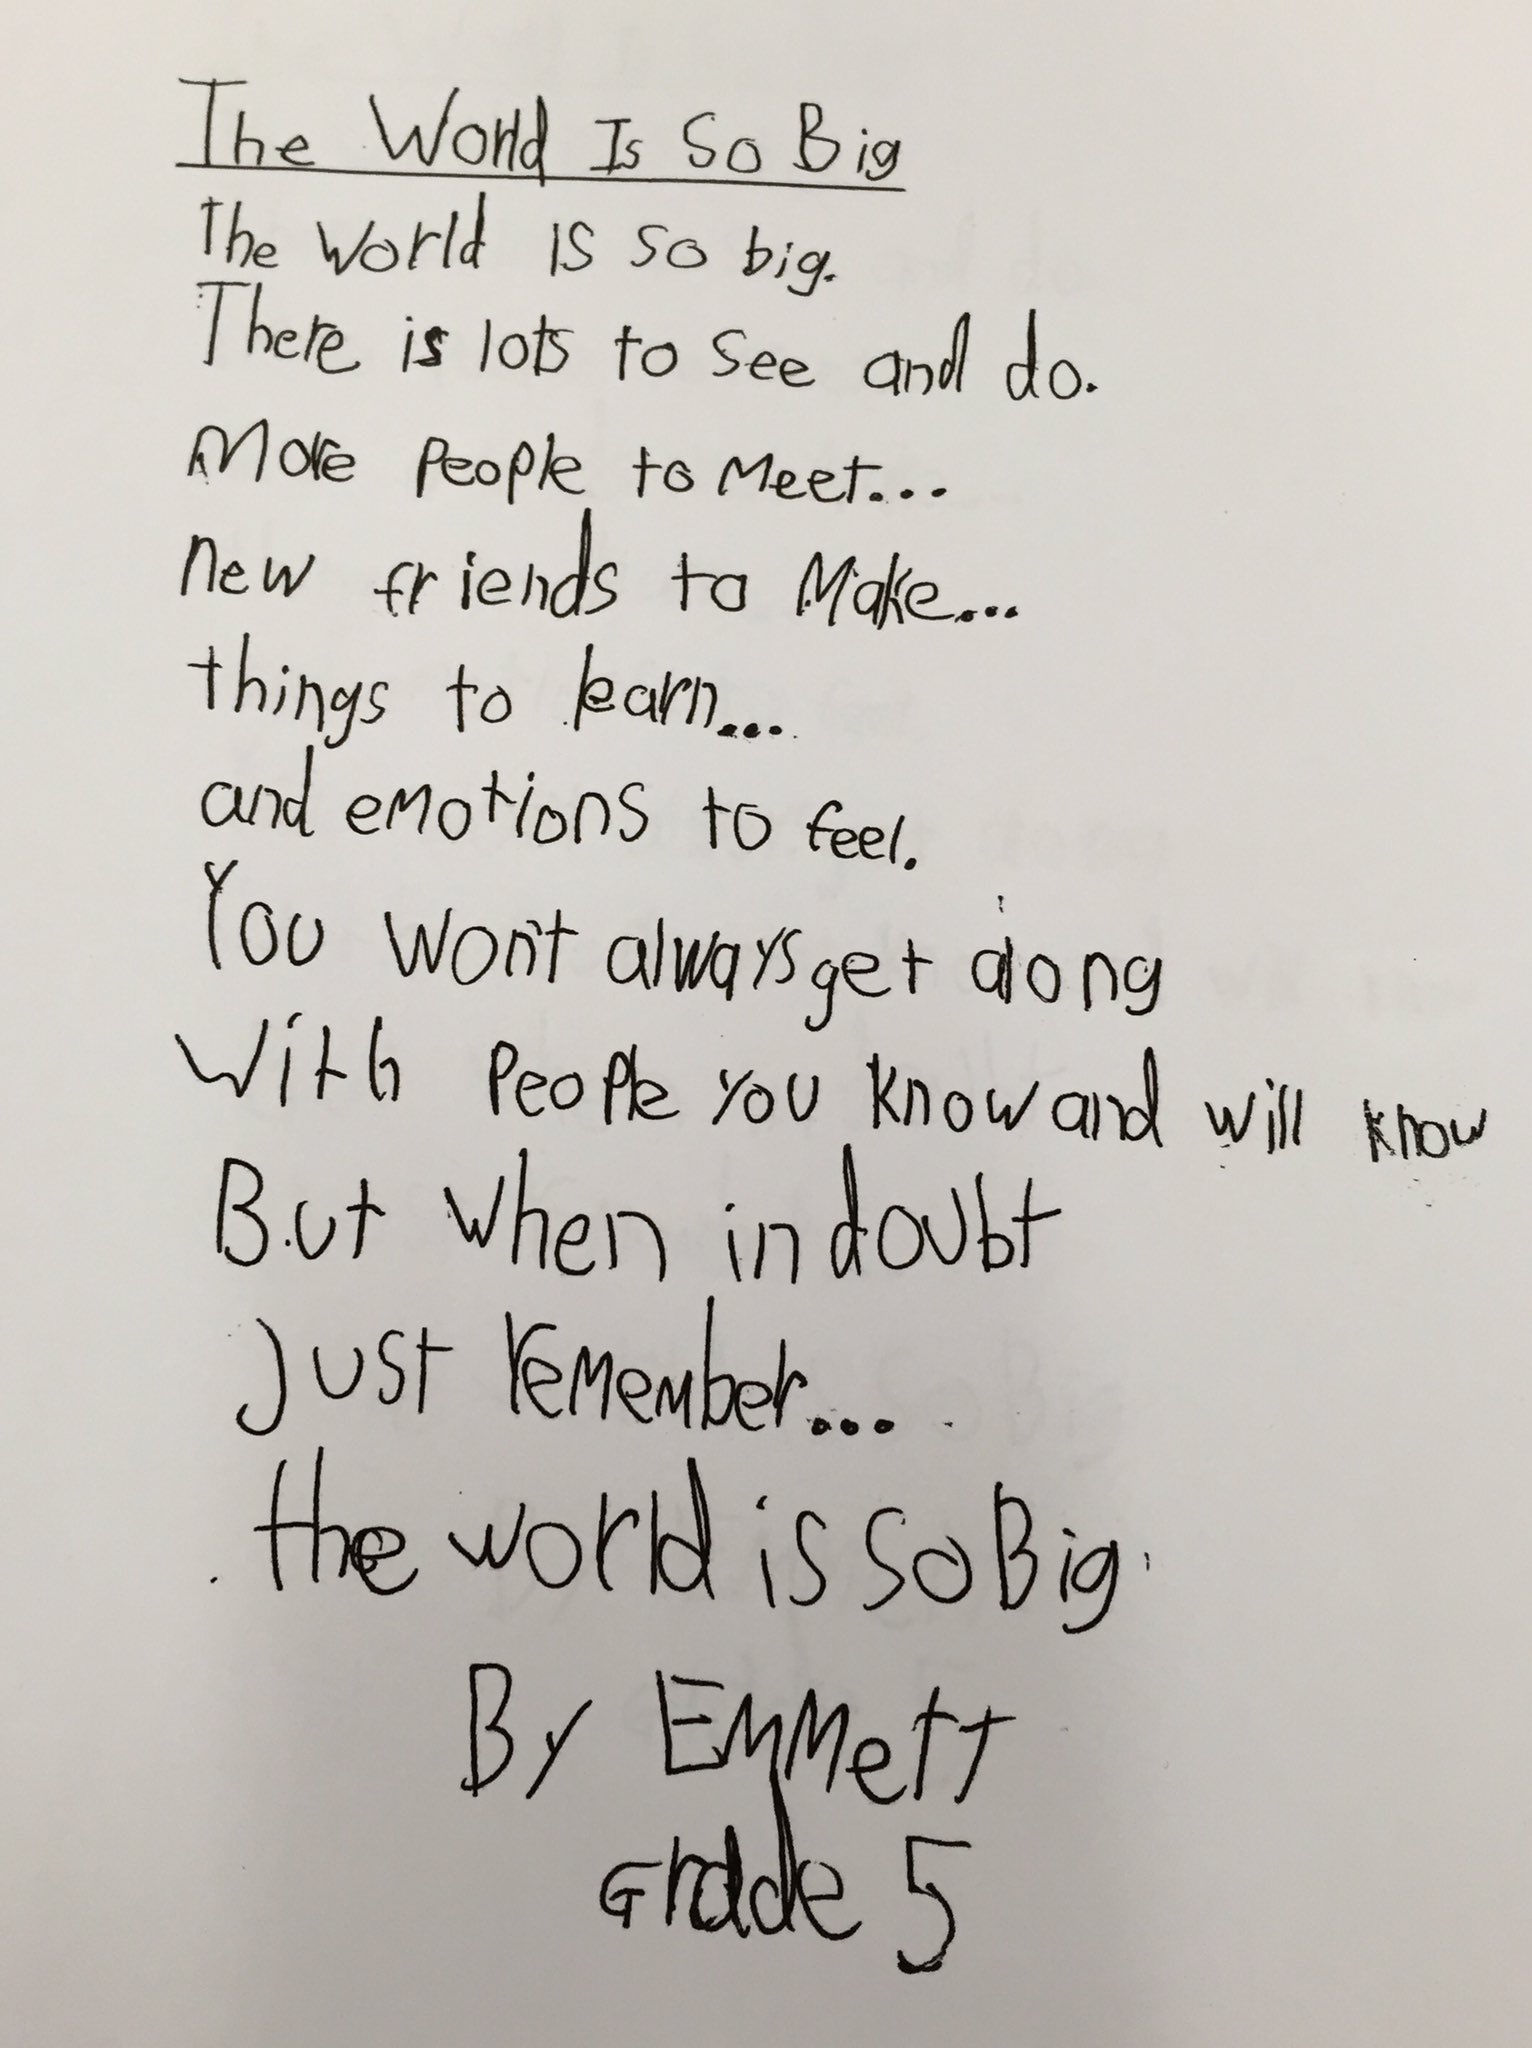 The World Is So Big
The world is so big.
There is lots to see and do.
More people to meet...
new friends to make...
things to learn...
and emotions to feel.
You won't always get along
with people you know and will know
But when in doubt
Just remember...
the world is so Big.
By Emmett
Grade 5